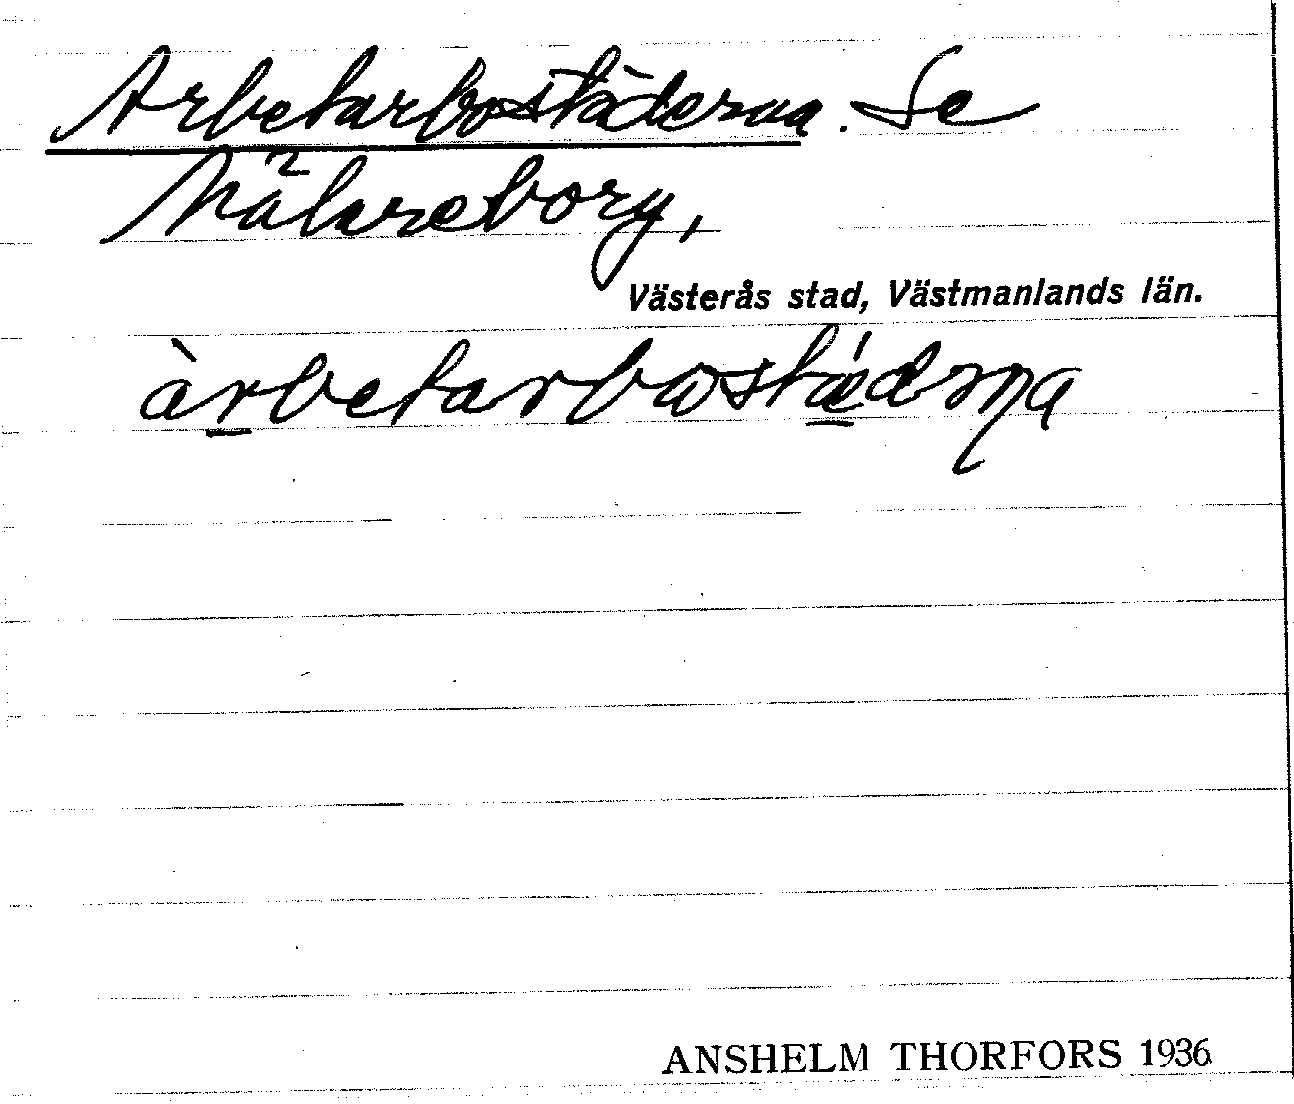 Arbetarbostäderna. Se
Mälareborg,
Västerås stad, Västmanlands län.
àrbetarbostǽdṇa
ANSHELM THORFORS 1936